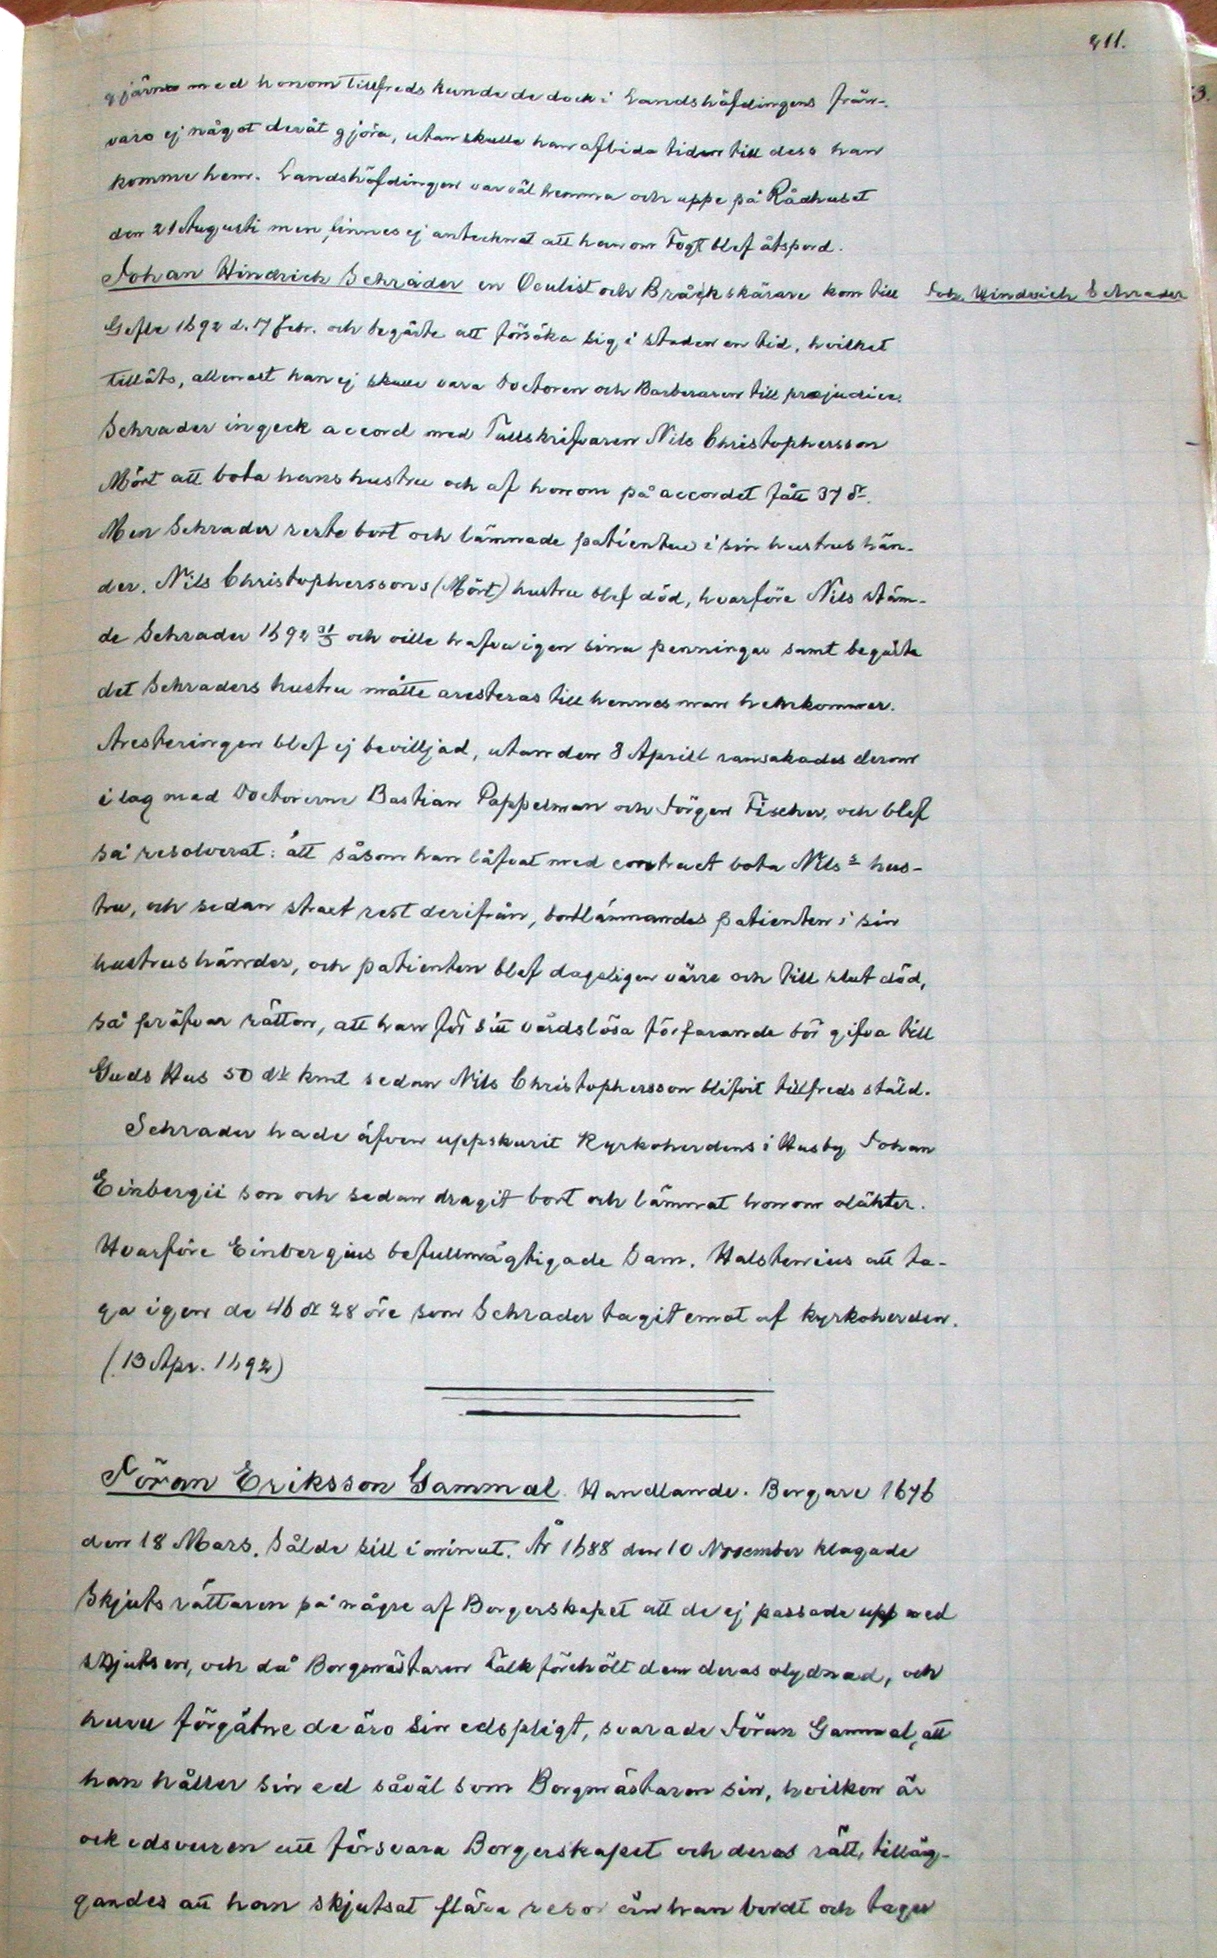 211.
gjärna med honom tillfreds kunde de dock i Landshöfdingens från-
varo ej något deråt gjöra, utan skulle han afbida tiden till dess han
komme hem. Landshöfdingen var väl hemma och uppe på Rådhuset
den 21 Augusti men finnes ej antecknat att han om Fogt blef åtspord.
Johan Hindrich Schrader en Oculist och Bråckskärare kom till
Joh. Hindrich Schrader
Gefle 1692 d. 17 Febr. och begärte att försöka sig i staden en tid, hvilket
tilläts, allenast han ej skulle vara Doctoren och Barberaren till præjudice.
Schrader ingeck accord med Tullskrifvaren Nils Christophersson
Mört att bota hans hustru och af honom på accordet fått 37 dr.
Men Schrader reste bort och lämnade patienten i sin hustrus hän-
der. Nils Christopherssons (Mört) hustru blef död, hvarföre Nils stäm-
de Schrader 1692 och ville hafva igen sina penningar samt begärte
det Schraders hustru måtte aresteras till hennes man hemkommer.
Aresteringen blef ej bevilljad, utan den 8 Aprill ransakades derom
i lag med Doctorerne Bastian Pappelman och Jörgen Fischer, och blef
så resolverat: att såsom han låfvat med contract bota Nils s hus-
tru, och sedan stract rest derifrån, bortlämnandes patienten i sin
hustrus händer, och patienten blef dageligen värre och till slut död,
så pröfvar rätten, att han för sitt vårdslösa förfarande bör gifva till
Guds Hus 50 dr kmt sedan Nils Christophersson blifvit tillfreds stäld.
Schrader hade äfven uppskurit Kyrkoherdens i Husby Johan
Einbergii son och sedan dragit bort och lämnat honom oläkter.
Hvarföre Einbergius befullmägtigade Sam. Halstenius att ta-
ga igen de 46 dr 28 öre som Schrader tagit emot af kyrkoherden.
(13 Apr. 1692)
Jöran Eriksson Gammal. Handlande. Borgare 1676
den 18 Mars. Sålde sill i minut. År 1688 den 10 November klagade
Skjutsrättaren på någre af Borgerskapet att de ej passade upp med
skjutsen, och då Borgmästaren Falk förehölt dem deras olydnad, och
huru förgätne de äro sin edspligt, svarade Jöran Gammal, att
han håller sin ed såväl som Borgmästaren sin, hvilken är
ock edsvuren att försvara Borgerskapet och deras rätt, tilläg-
gandes att han skjutsat flära resor än han bordt och tager